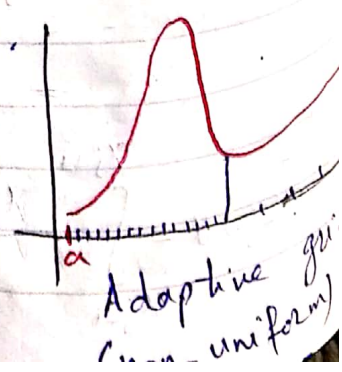 a
Adaptive gri
(non-uniform)